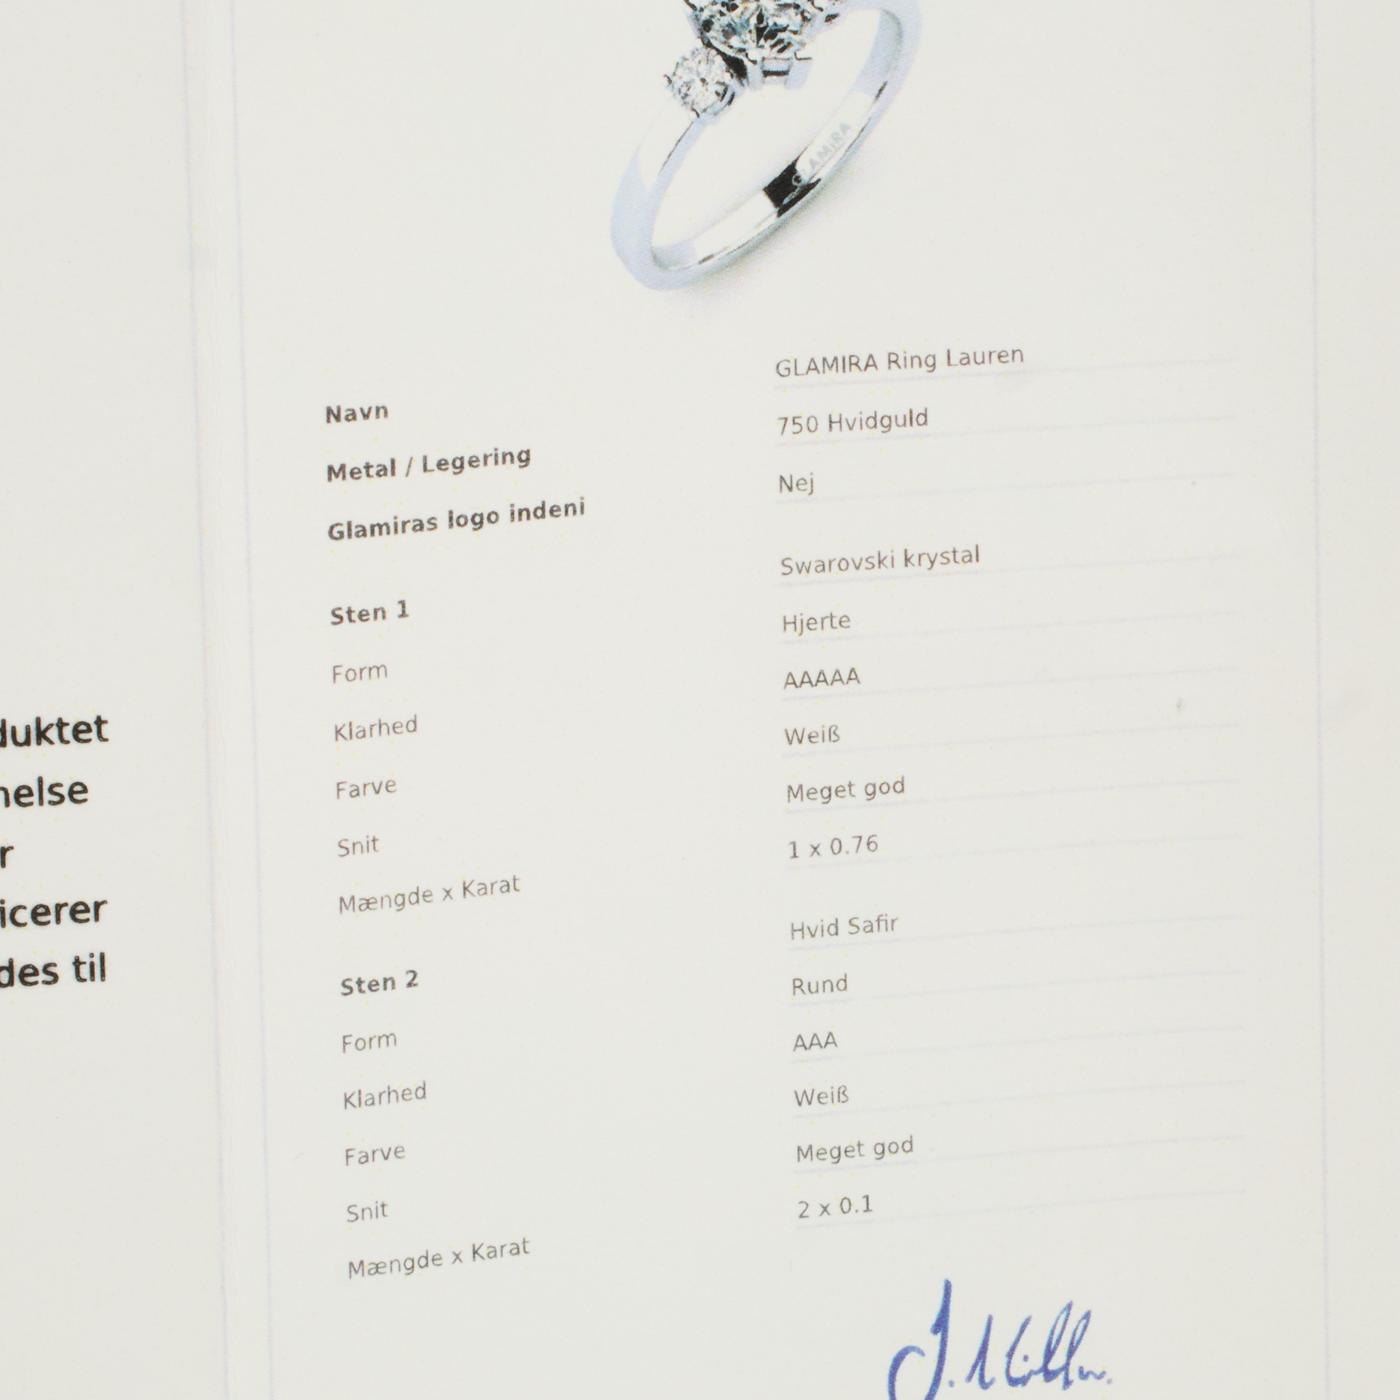 GLAMIRA
Navn GLAMIRA Ring Lauren
Metal / Legering 750 Hvidguld
Glamiras logo indeni Nej
Sten 1 Swarovski krystal
Form Hjerte
Klarhed AAAAA
Farve Weiß
Snit Meget god
Mængde x Karat 1 x 0.76
Sten 2 Hvid Safir
Form Rund
Klarhed AAA
Farve Weiß
Snit Meget god
Mængde x Karat 2 x 0.1
duktet
nelse
r
icerer
des til